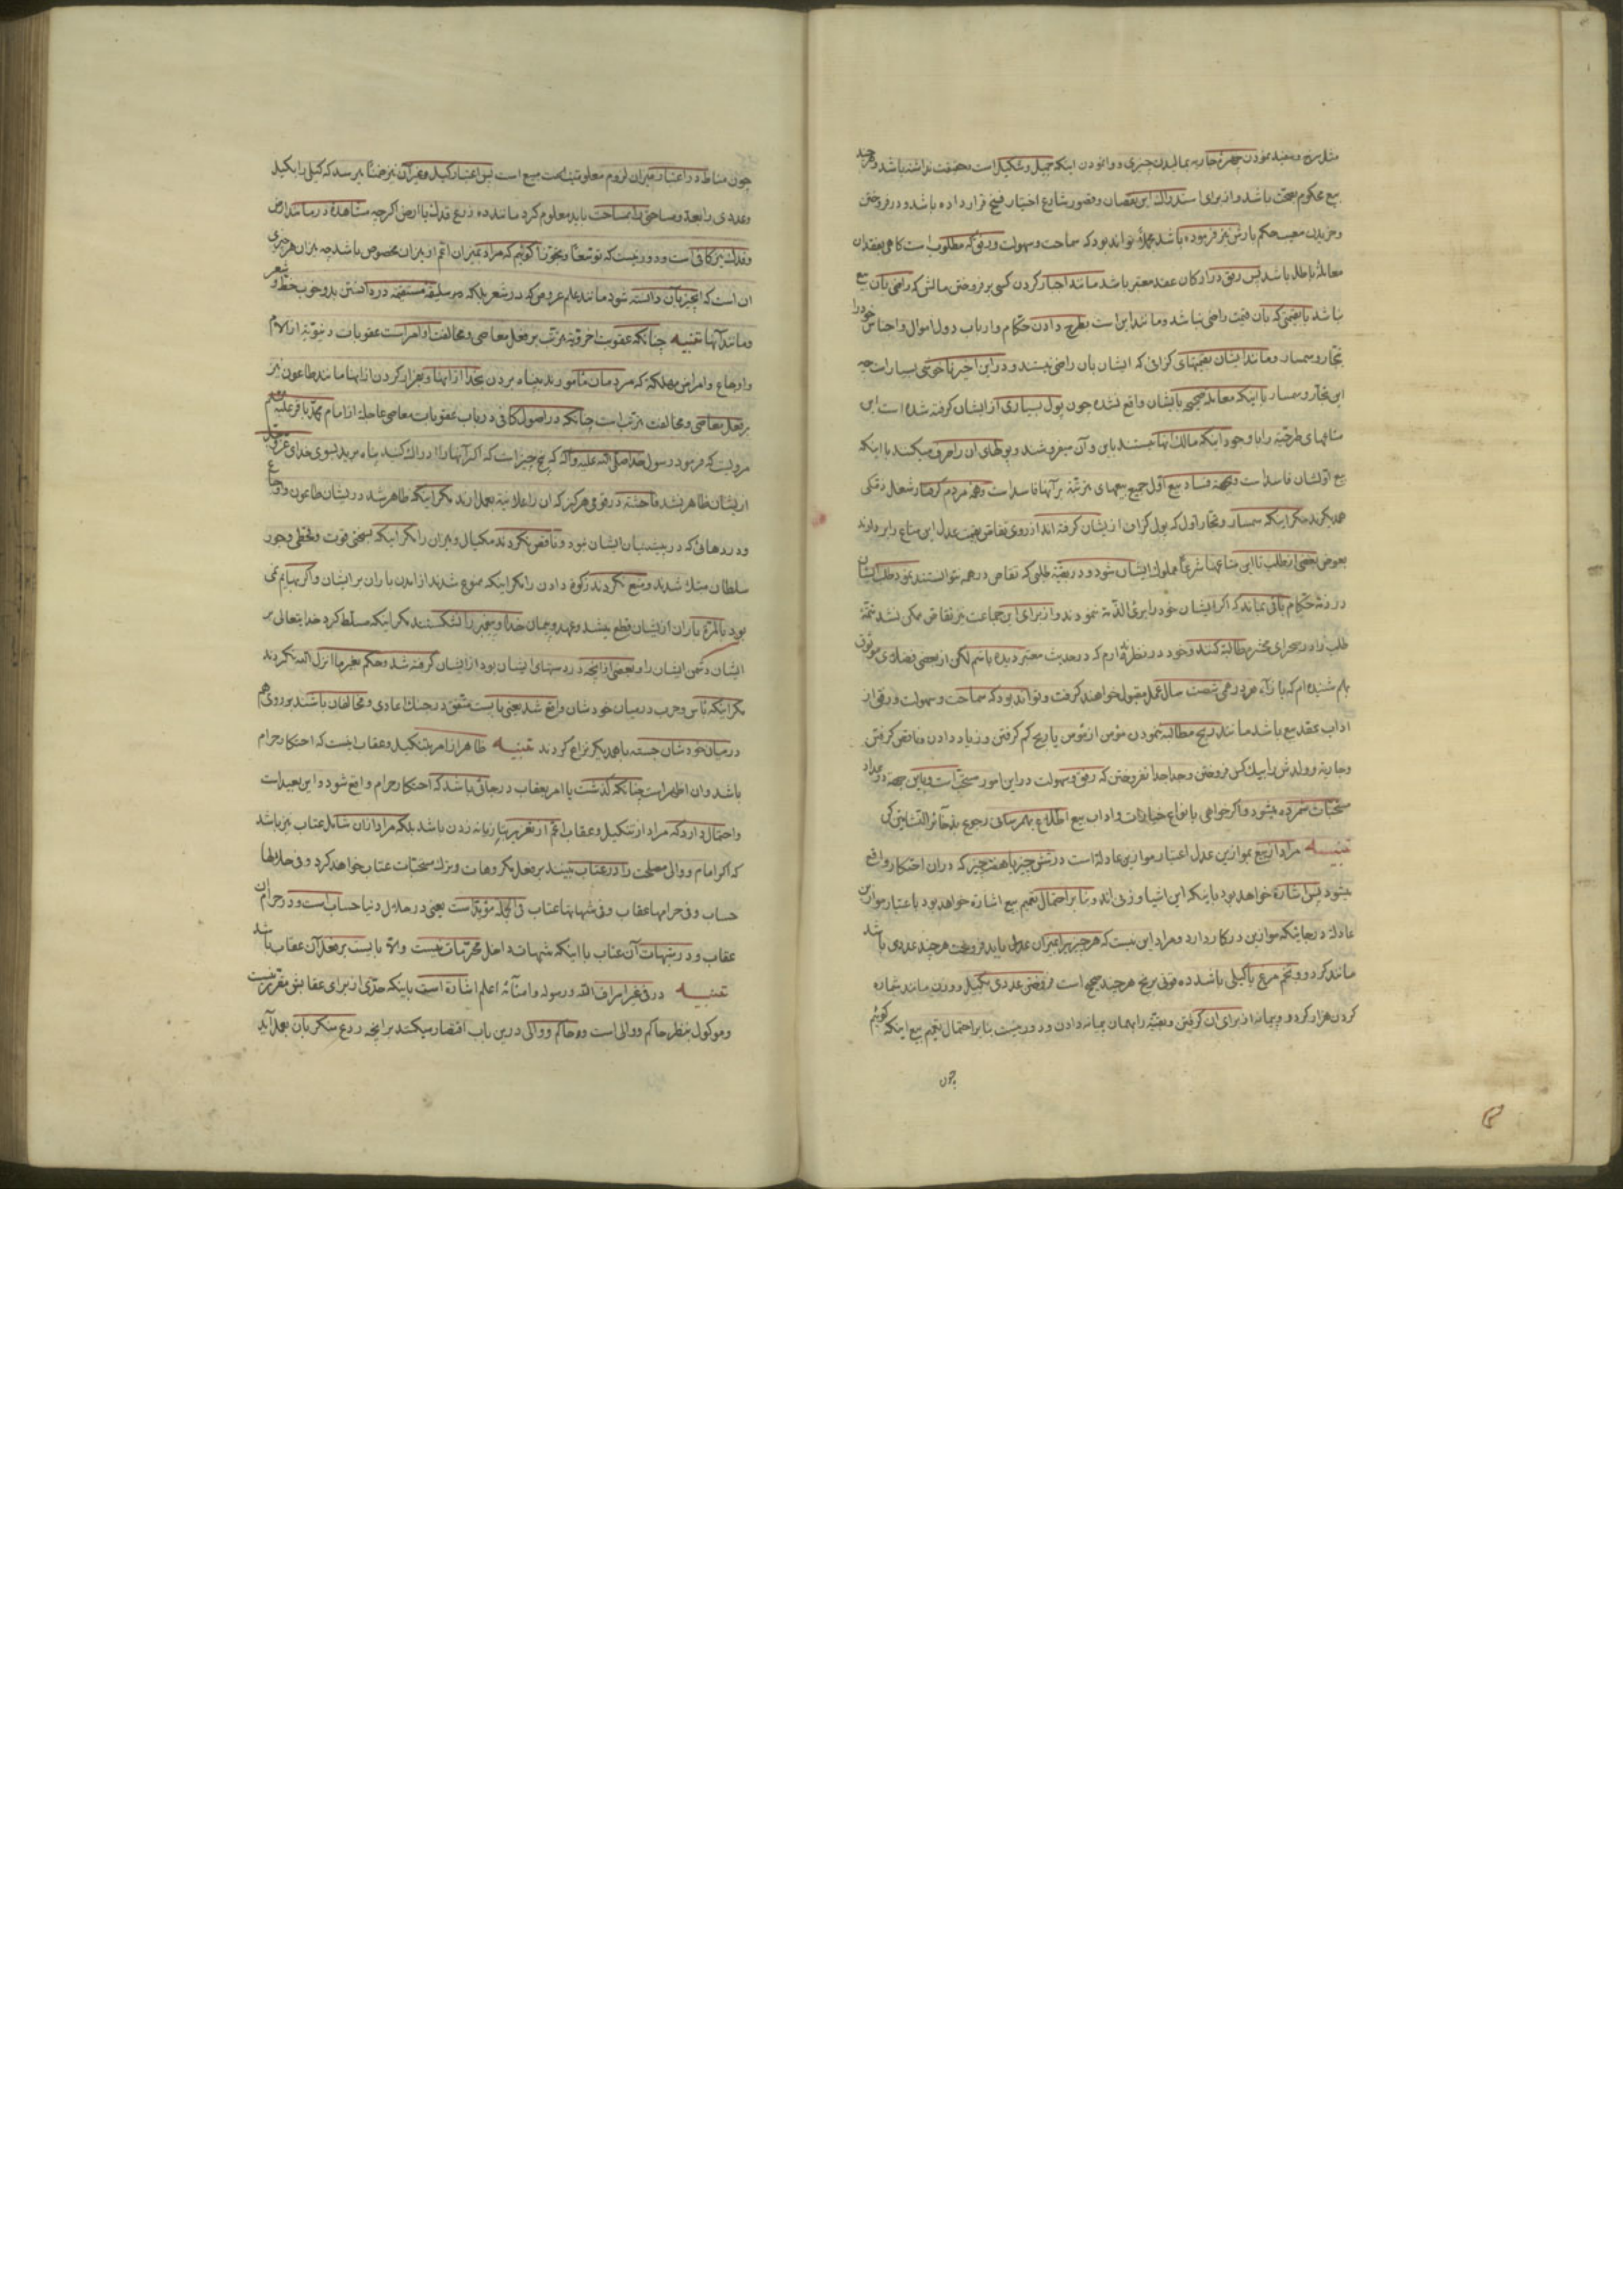 مثل سرخ و سفید نمودن چهرهٔ جاریه بمالیدن چیزی و وانمودن اینکه جمیل و شکیل است و حقیقت نداشته باشد و هرچند
بیع محکوم بصحت باشد و از برای استدراک این نقصان و قصور شارع اختیار فسخ قرار داده باشد و در فروختن
و خریدن معیب حکم بارش نیز فرموده باشد و تواند بود که سماحت و سهولت و رفق که مطلوب است کاهی بفقدان
معامله باطل باشد پس رفق در ارکان عقد معتبر باشد مانند اجبار کردن کسی بر فروختن مالش که راضی بآن بیع
نباشد یا بقیمتی که بآن قیمت راضی نباشد و مانند این است بطرح دادن حکام و ارباب دول اموال و اجناس خود را
بتجار و سمسار و مانند ایشان بقیمتهای کرانی که ایشان بآن راضی نیستند و در این اخیر ناخوشی بسیار است چه
این تجار و سمسار با اینکه معاملهٔ صحیحی با ایشان واقع نشده چون پول بسیاری از ایشان کرفته شده است این
متاعهای طرحیّه را با وجود اینکه مالک آنها نیستند باین و آن میفروشند و پولهای آن را صرف میکنند با اینکه
بیع اول ایشان فاسد است و بجهة فساد بیع اول جمیع بیعهای مترتبه بر آنها فاسد است و همهٔ مردم کرفتار شغل ذمّکی
همدیکرند مکر اینکه سمسار و تجار اول که پول کزاف از ایشان کرفته اند از روی تقاص بقیمت عدل این متاع را بردارند
بعوض بعضی از طلب تا این متاعها شرعاً مملوک ایشان شود و در بقیّه طلبی که تقاص در همه نتوانستند نمود طلب ایشان
در ذمّهٔ حکام باقی بماند که اکر ایشان خود را بریء الذمّة نمودند و از برای این جماعت نیز تقاص ممکن نشد تتمّهٔ
طلب را در صحرای محشر مطالبه کنند و خود در نظر ندارم که در حدیث معتبر دیده باشم لکن از بعضی فضلای موثوق
بهم شنیده ام که بازاء هر درهمی شصت سال عمل مقبول خواهند کرفت و تواند بود که سماحت و سهولت و رفق از
اداب عقد بیع باشد مانند ربح مطالبه ننمودن مؤمن از مؤمن یا ربح کم کرفتن و زیاد دادن و ناقص کرفتن
و جاریة و ولدش را بیک کس فروختن و جدا جدا نفروختن که رفق و سهولت در این امور مستحب است و باین جهة در عداد
مستحبّات شمرده میشود و اکر خواهی بانواع خیارات و اداب بیع اطلاع بهم رسانی رجوع بذخائر النشأتین کن
تنبیـه مراد از بیع بموازین عدل اعتبار موازین عادلة است در شش چیز یا هفت چیز که در ان احتکار واقع
میشود پس اشاره خواهد بود باینکه این اشیا وزنی اند و بنا بر احتمال تعمیم بیع اشاره خواهد بود باعتبار موازین
عادله در جاییکه موازین در کار دارد و مراد این نیست که هر چیز را بمیزان عدل باید فروخت هرچند عددی باشد
مانند کردو و تخم مرغ یا کیلی باشد
کردن هزار کردو و پیمانه از برای ان کرفتن و بقیّه را بهمان پیمانه دادن و دور نیست بنا بر احتمال تعمیم بیع اینکه کوئیم
چون
چون مناط در اعتبار میزان لزوم معلومیت قیمت مبیع است پس اعتبار کیل و میزان نیز ضمناً میرسد که کیلی را بکیل
و عددی را بعدد و مساحتی را بمساحت باید معلوم کرد مانند ده ذرع قدک یا ارض اکرچه مشاهده در مانند ارض
و قدک نیز کافی است و دور نیست که توسّعاً و تجوّزاً کوئیم که مراد بمیزان اعم از میزان مخصوص باشد چه میزان هر چیزی
ان است که انچیز بآن دانسته شود مانند علم عروض که در شعر بلکه هر سلیقه مستقیمه در دانستن بد و خوب خط و شعر
و مانند آنها تنبیـه چنانکه عقوبت اخرویّه مترتب بر فعل معاصی و مخالفت اوامر است عقوبات دنیویّه از آلام
و اوجاع و امراض مهلکة که مردمان مأمورند به پناه بردن بخدا از اینها و بفرار کردن از اینها مانند طاعون نیز
بر فعل معاصی و مخالفت مترتب است چنانکه در اصول کافی در باب عقوبات معاصی عاجله از امام محمد باقر علیه السلام
مرویست که فرمود رسول خدا صلی الله علیه وآله که پنج چیز است که اکر آنها را ادراک کنید پناه برید بسوی خدای عز و جل
از ایشان ظاهر نشد فاحشة در قومی هرکز که ان را علانیة بعمل ارند مکر اینکه ظاهر شد در ایشان طاعون و اوجاع
و دردهائی که در پیشینیان ایشان نبود و ناقص نکردند مکیال و میزان را مکر اینکه بسختی قوت و قحطی و جور
سلطان مبتلا شدند و منع نکردند زکوة دادن را مکر اینکه ممنوع شدند از امدن باران بر ایشان و اکر بهایم نمی
بود بالمرّة باران از ایشان قطع میشد و عهد و پیمان خدا و پیغمبر را نشکستند مکر اینکه مسلّط کرد خدایتعالی بر
ایشان دشمن ایشان را و بعضی از آنچه در دستهای ایشان بود از ایشان کرفته شد و حکم بغیر ما انزل الله نکردند
مکر اینکه بأس و حرب در میان خودشان واقع شد یعنی بایست متفق در جنک اعادی و مخالفان باشند بر روی هم
در میان خودشان جسته با همدیکر نزاع کردند تنبیـه ظاهر از امر بتنکیل و عقاب اینست که احتکار حرام
باشد و ان اظهر است چنانکه کذشت یا امر بعقاب در جائی باشد که احتکار حرام واقع شود و این بعید است
و احتمال دارد که مراد از تنکیل و عقاب اعم از تعزیر بتازیانه زدن باشد بلکه مراد از ان شامل عتاب نیز باشد
که اکر امام و والی مصلحت را در عتاب بینند بر فعل مکروهات و ترک مستحبّات عتاب خواهد کرد و فی حلالها
حساب و فی حرامها عقاب و فی شبهاتها عتاب فی الجمله مؤید است یعنی در حلال دنیا حساب است و در حرام ان
عقاب و در شبهات آن عتاب با اینکه شبهات داخل محرّمات نیست والّا بایست بر فعل آن عقاب باشد
تنبیـه در فی غیر اسراف الله و رسوله و امنائه اعلم اشارة است باینکه حدّی از برای عقابش مقرّر نیست
و موکول بنظر حاکم و والی است و حاکم و والی درین باب اقتصار میکند بر آنچه ردع منکر بآن بعمل آید